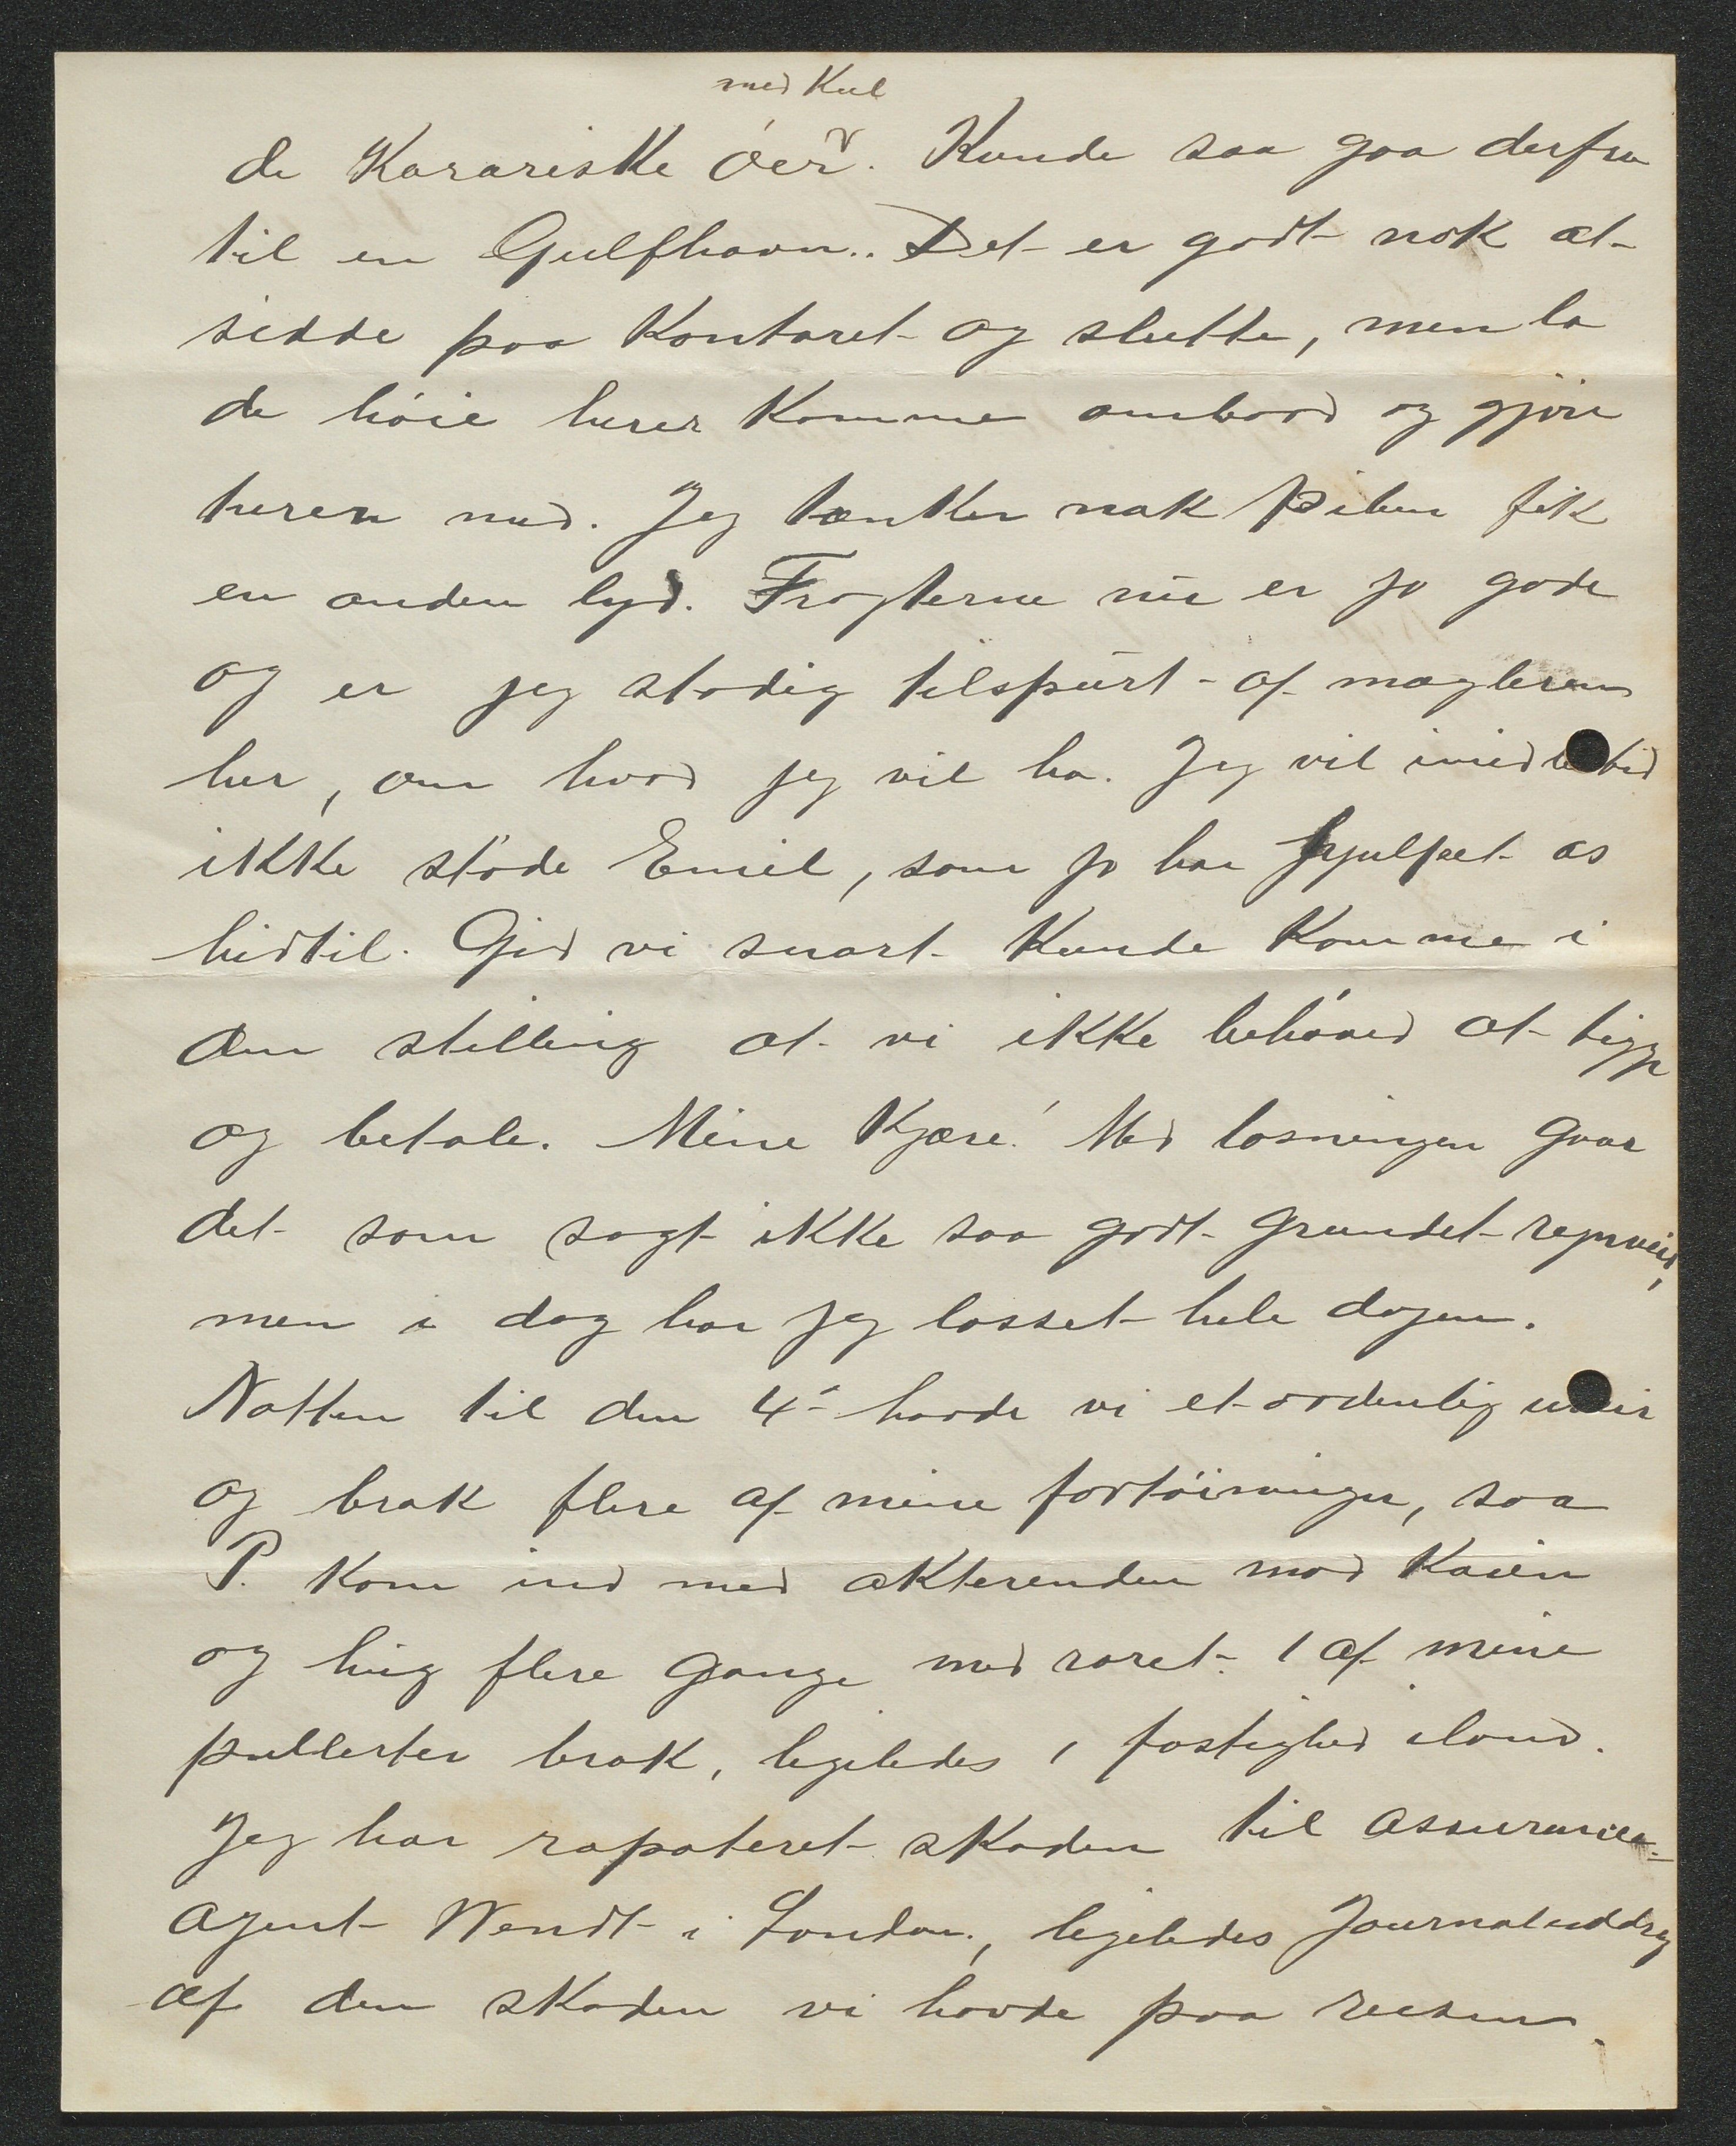 med Kul
de Kanariske öer. Kunde saa gaa derfra
til en Gulfhavn.. Det er godt nok at
sidde paa Kontoret og slutte, men la
de höie herrer Komme ombord og gjöre
turen med. Jeg tænker nok Piben fik
en anden lyd. Fragterne nu er jo gode
og er jeg stadig tilspurt af mæglerne
her, om hvad jeg vil ha. Jeg vil imidlertid
ikke stöde Emil, som jo har hjulpet os
hidtil. Gid vi snart Kunde Komme i
den stilling at vi ikke behöved at tigge
og betale. Mine Kjære! Med losningen gaar
det som sagt ikke saa godt grundet regnveir,
men i dag har jeg losset hele dagen.
Natten til den 4de havde vi et ordentlig uveir
og brak flere af mine fortöininger, saa
P. Kom ind med akterenden mod Kaien
og hug flere gange med roret. 1 af mine
pullerter brak, ligeledes 1 fastighed iland.
Jeg har rapoteret skaden til assurance-
agent Wendt i London, ligeledes Journaluddrag
af den skaden vi havde paa reisen.